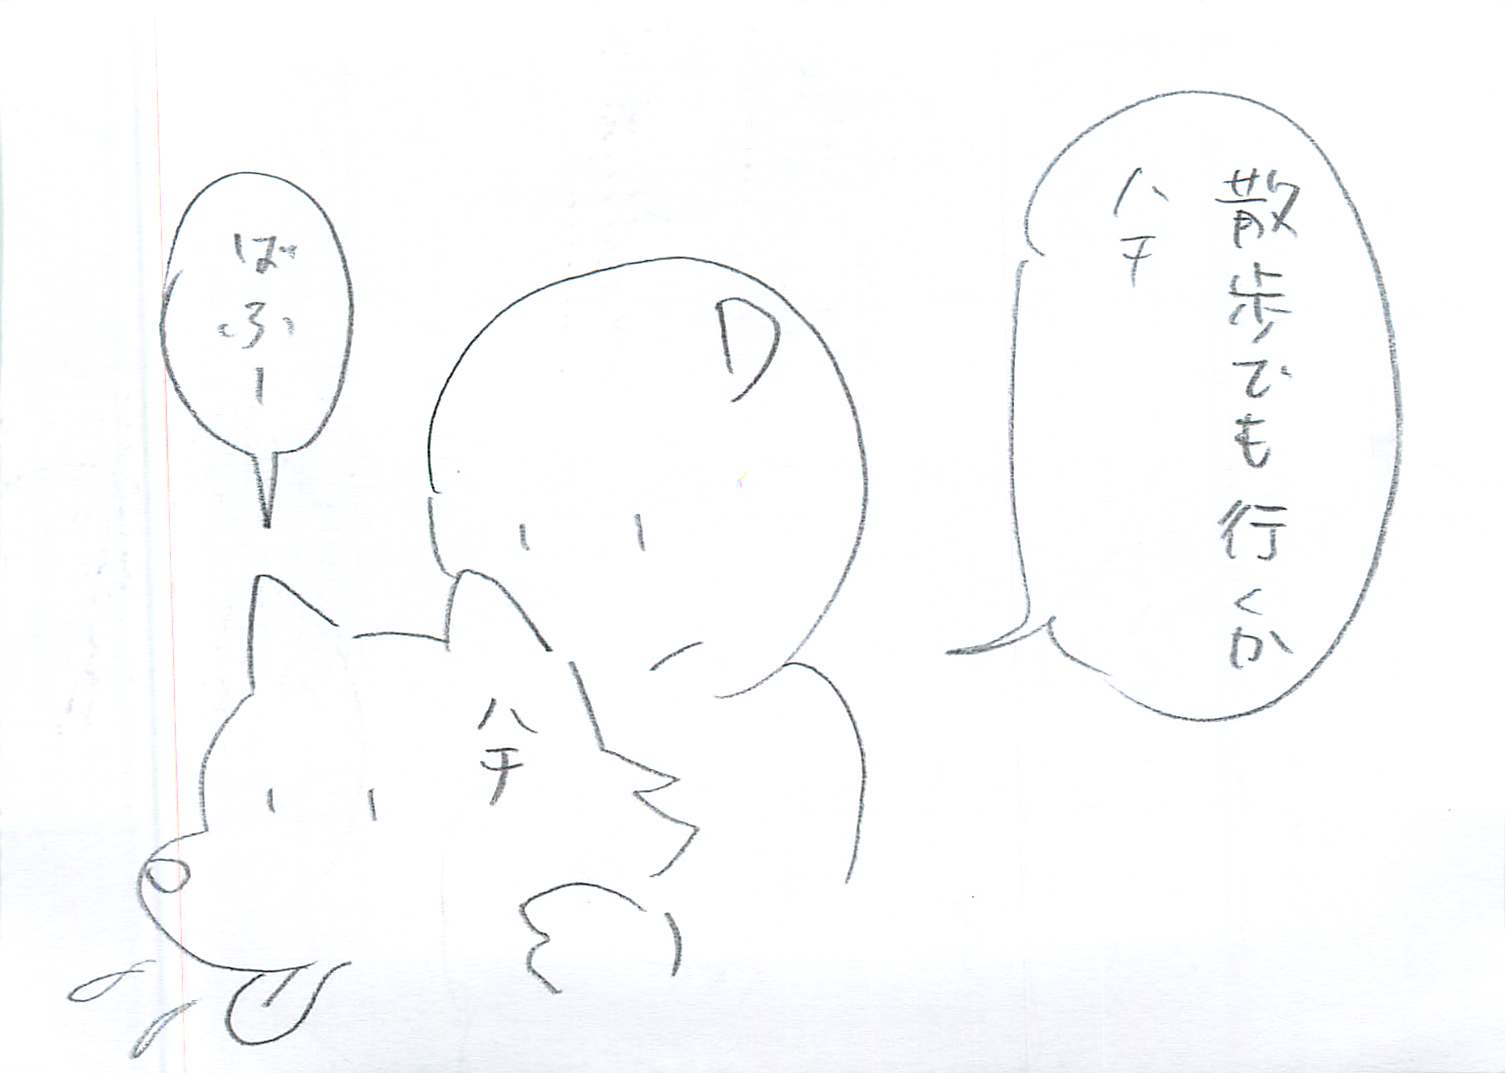 散歩でも行くか
ハチ
D
ばふー
ハチ